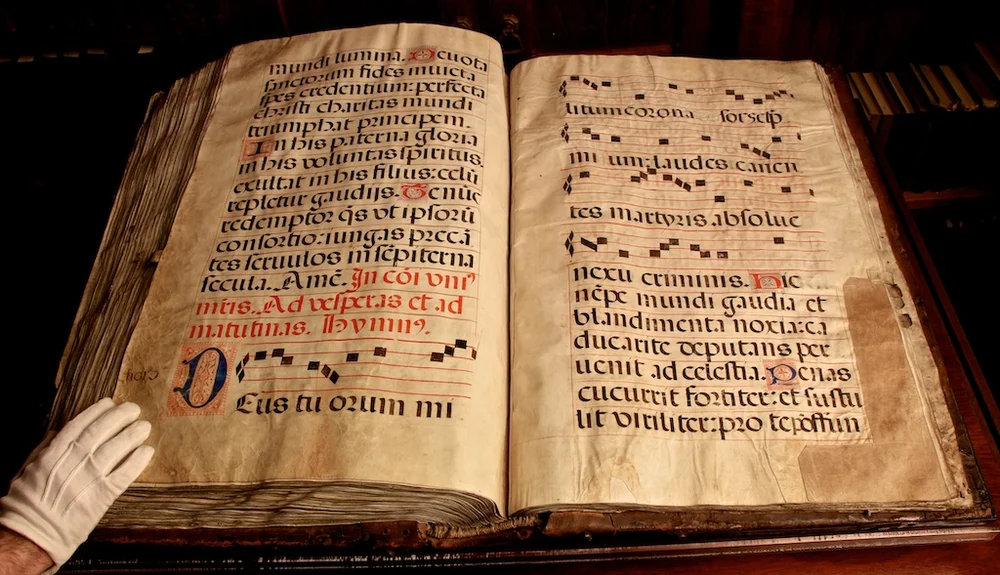 mundi lumina. Deuota
sanctorum fides inuicta
spes credentium: perfecta
christi charitas mundi
triumphat principem.
In his paterna gloria
in his voluntas spiritus.
exultat in his filius: celū
repletur gaudijs. Te nūc
redemptor q̄s vt ipsorū
consortio: iungas preca
tes seruulos in sēpiterna
secula. Amē. In cōi vniꝰ
mr̄is. Ad vesperas et ad
matutinas. Hymnꝰ.
DEus tu orum mi
litum corona sors et p̄
mi um: laudes canen
tes martyris absolue
nexu criminis. Hic
nēpe mundi gaudia et
blandimenta noxia: ca
duca rite deputans per
uenit ad celestia. Penas
cucurrit fortiter: et sustu
lit viriliter: pro te